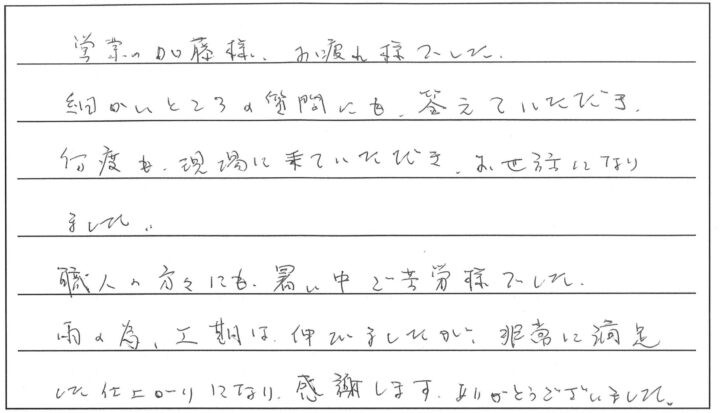 営業の加藤様、お疲れ様でした。
細かいところの質問にも、答えていただき、
何度も、現場に来ていただき、お世話になり
ました。
職人の方々にも、暑い中ご苦労様でした。
雨の為、工期は、伸びましたが、非常に満足
した仕上がりになり、感謝します。ありがとうございました。